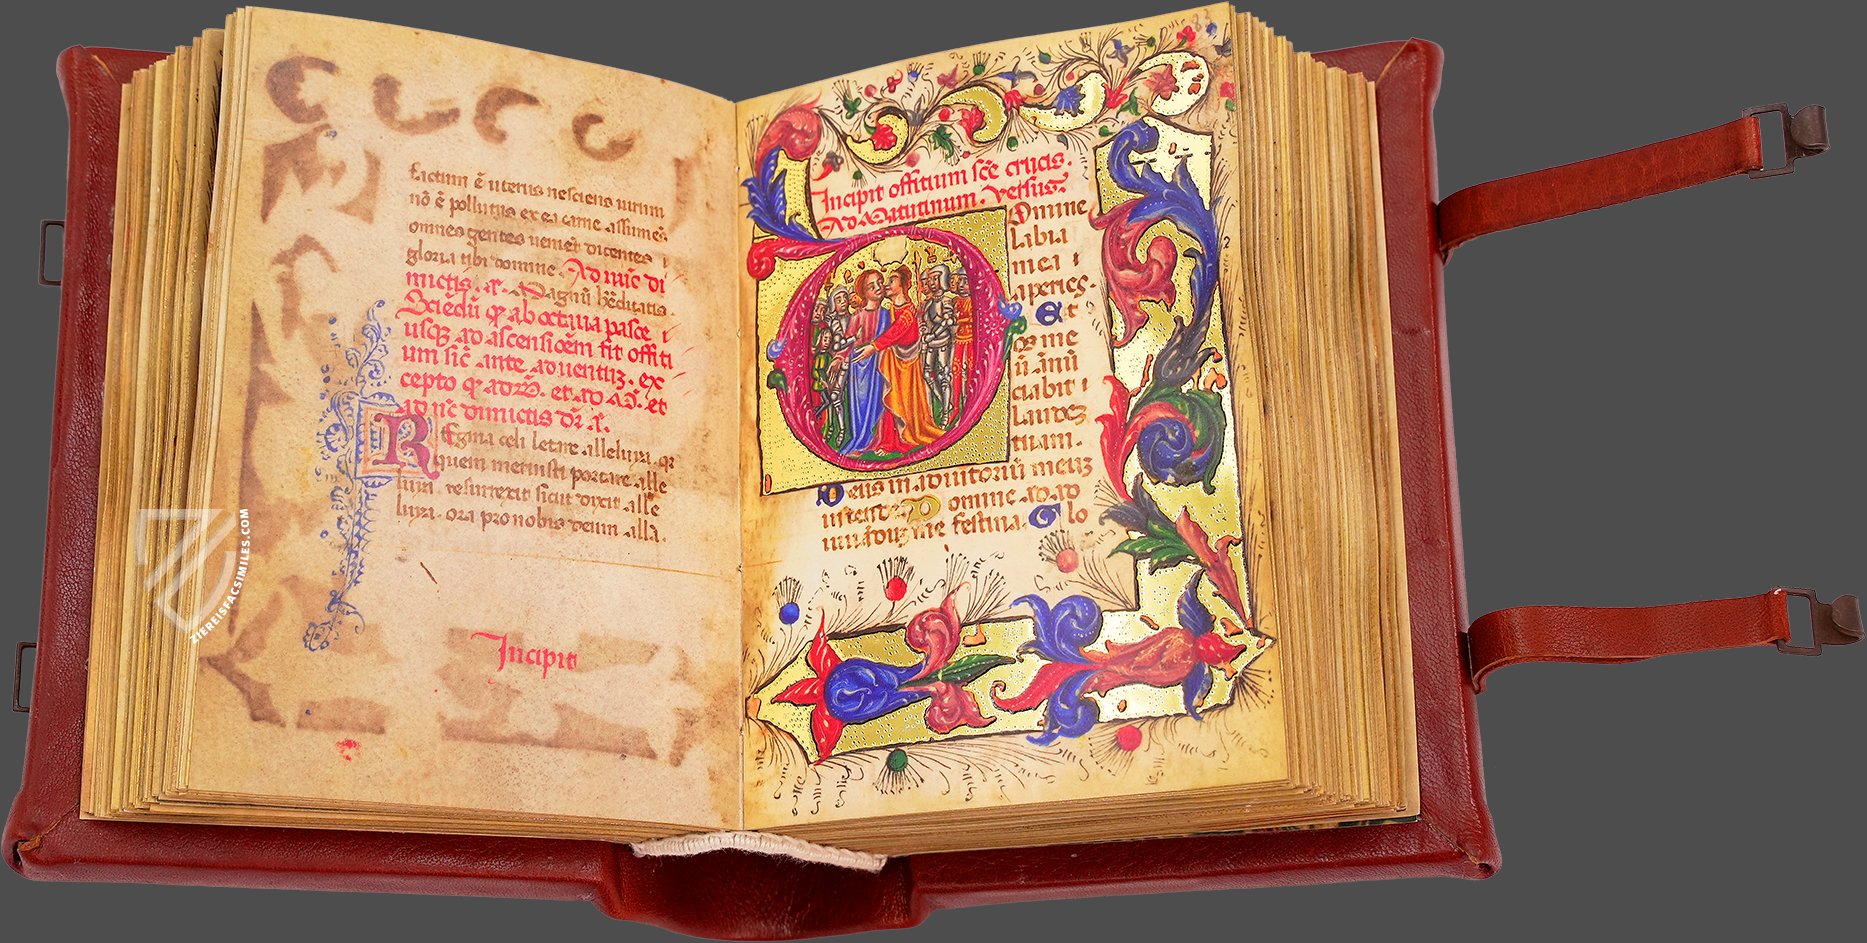 factum ē uterus nesciens uirum
nō ē pollutus ex ea carne assumēs
omnes gentes uenient dicentes
gloria tibi domine. Ad nūc di
mictis. a. Magnū hēditatis.
Sciēdū qp ab octaua pasce
usqp ad ascensionem fit offiti
um sic ante aduentuz. ex
cepto qp ad et ad et
ad nūc dimictis dr. a.
REgina celi letare alleluya. qz
quem meruisti portare alle
luya. resurrexit sicut dixit alle
luya. ora pro nobis deum alla.
Incipit
Incipit offitium scē crucis.
Ad Matutinum. Versus.
Domine
labia
mea
aperies.
Et
os me
ū ānū
ciabit
laudez
tuam.
Deus in adiutoriū meuz
intende. Domine ad ad
iuuāduz me festina. Glo
83
2
ZIEREISFACSIMILES.COM